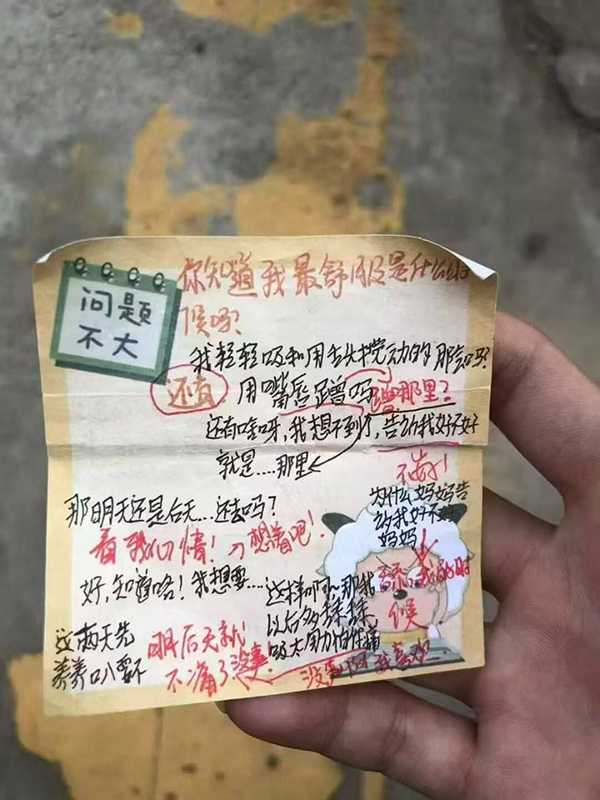 问题
不大
你知道我最舒服是什么时
候吗?
我轻轻吸和用舌头搅动的那会吗?
还有 用嘴唇蹭吗 蹭那里?
还有啥呀,我想不到了,告幼我好不好
就是....那里
不好!
那明天还是后天...还去吗?
为什么妈妈告
幼我好不好
妈妈
看我心情! 想着吧!
好,知道哈!我想要...
这样啊 那我
以后多揉揉
吸太用力怕你痛
我的时
候
这两天先
养养
明后天就
不痛了没事
没事啊 我喜欢